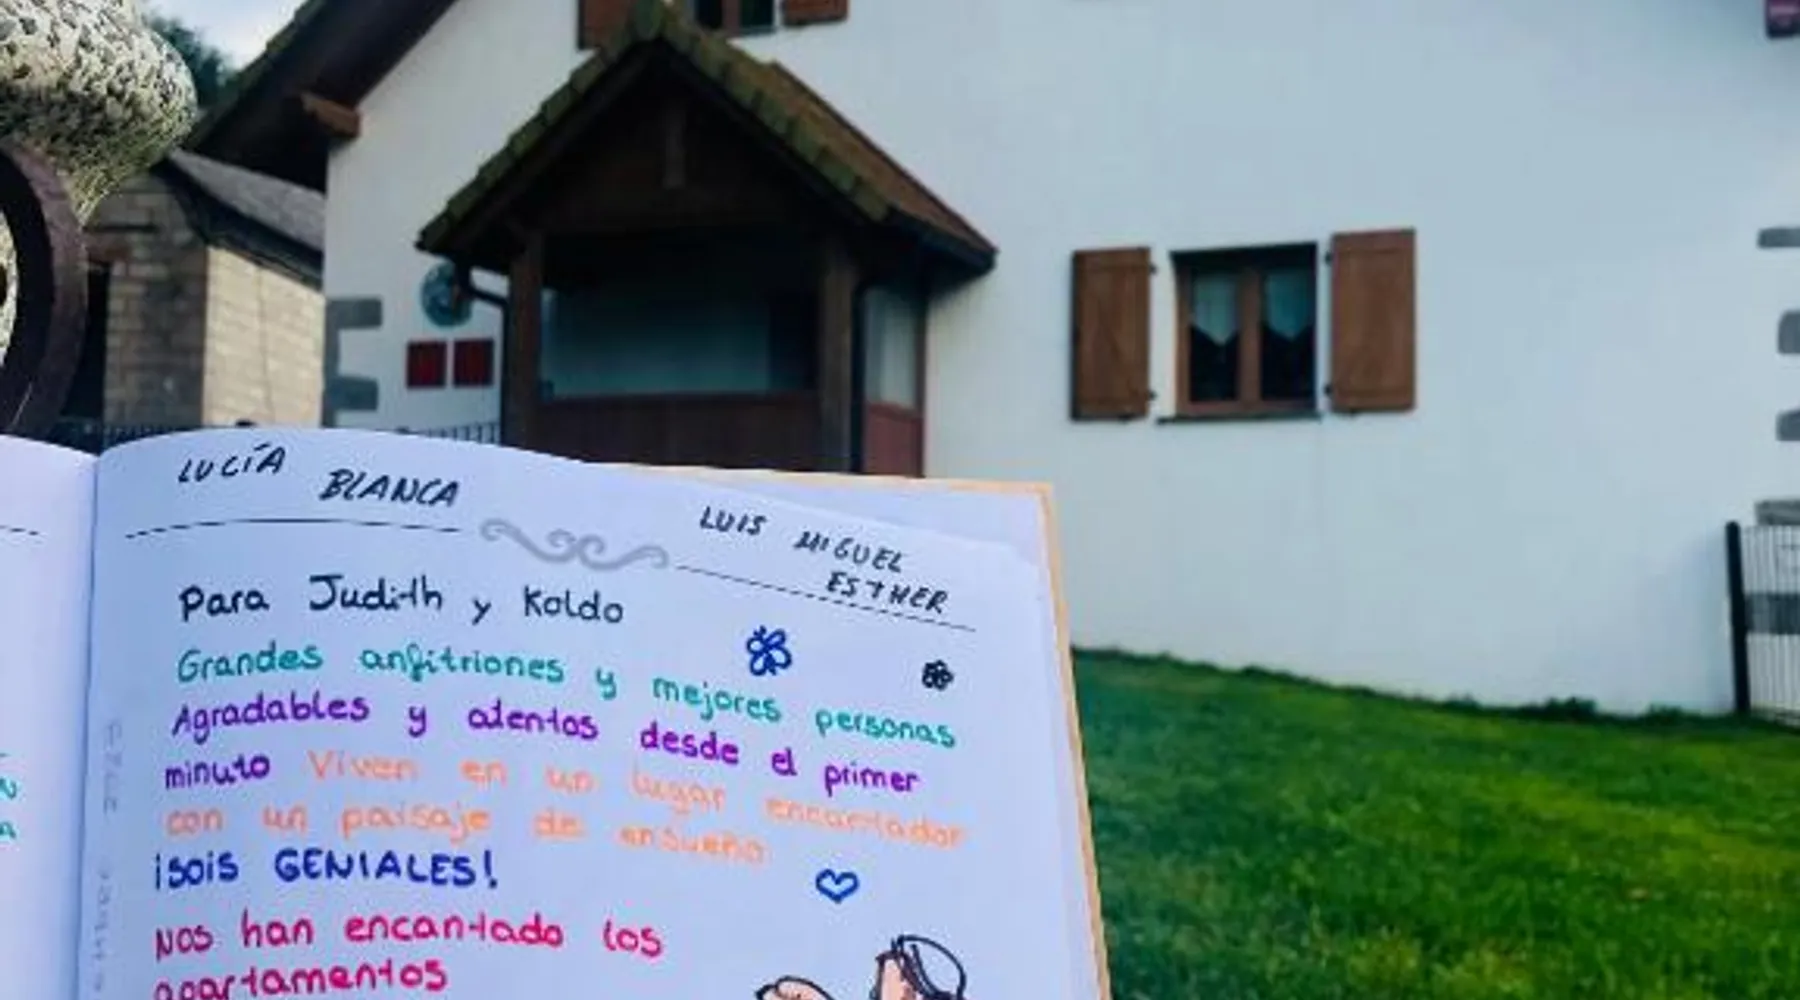 LUCÍA BLANCA
LUIS MIGUEL
ESTHER
Para Judith y Koldo
Grandes anfitriones y mejores personas
Agradables y atentos desde el primer
minuto Viven en un lugar encantador
con un paisaje de ensueño
¡SOIS GENIALES!
Nos han encantado los
apartamentos